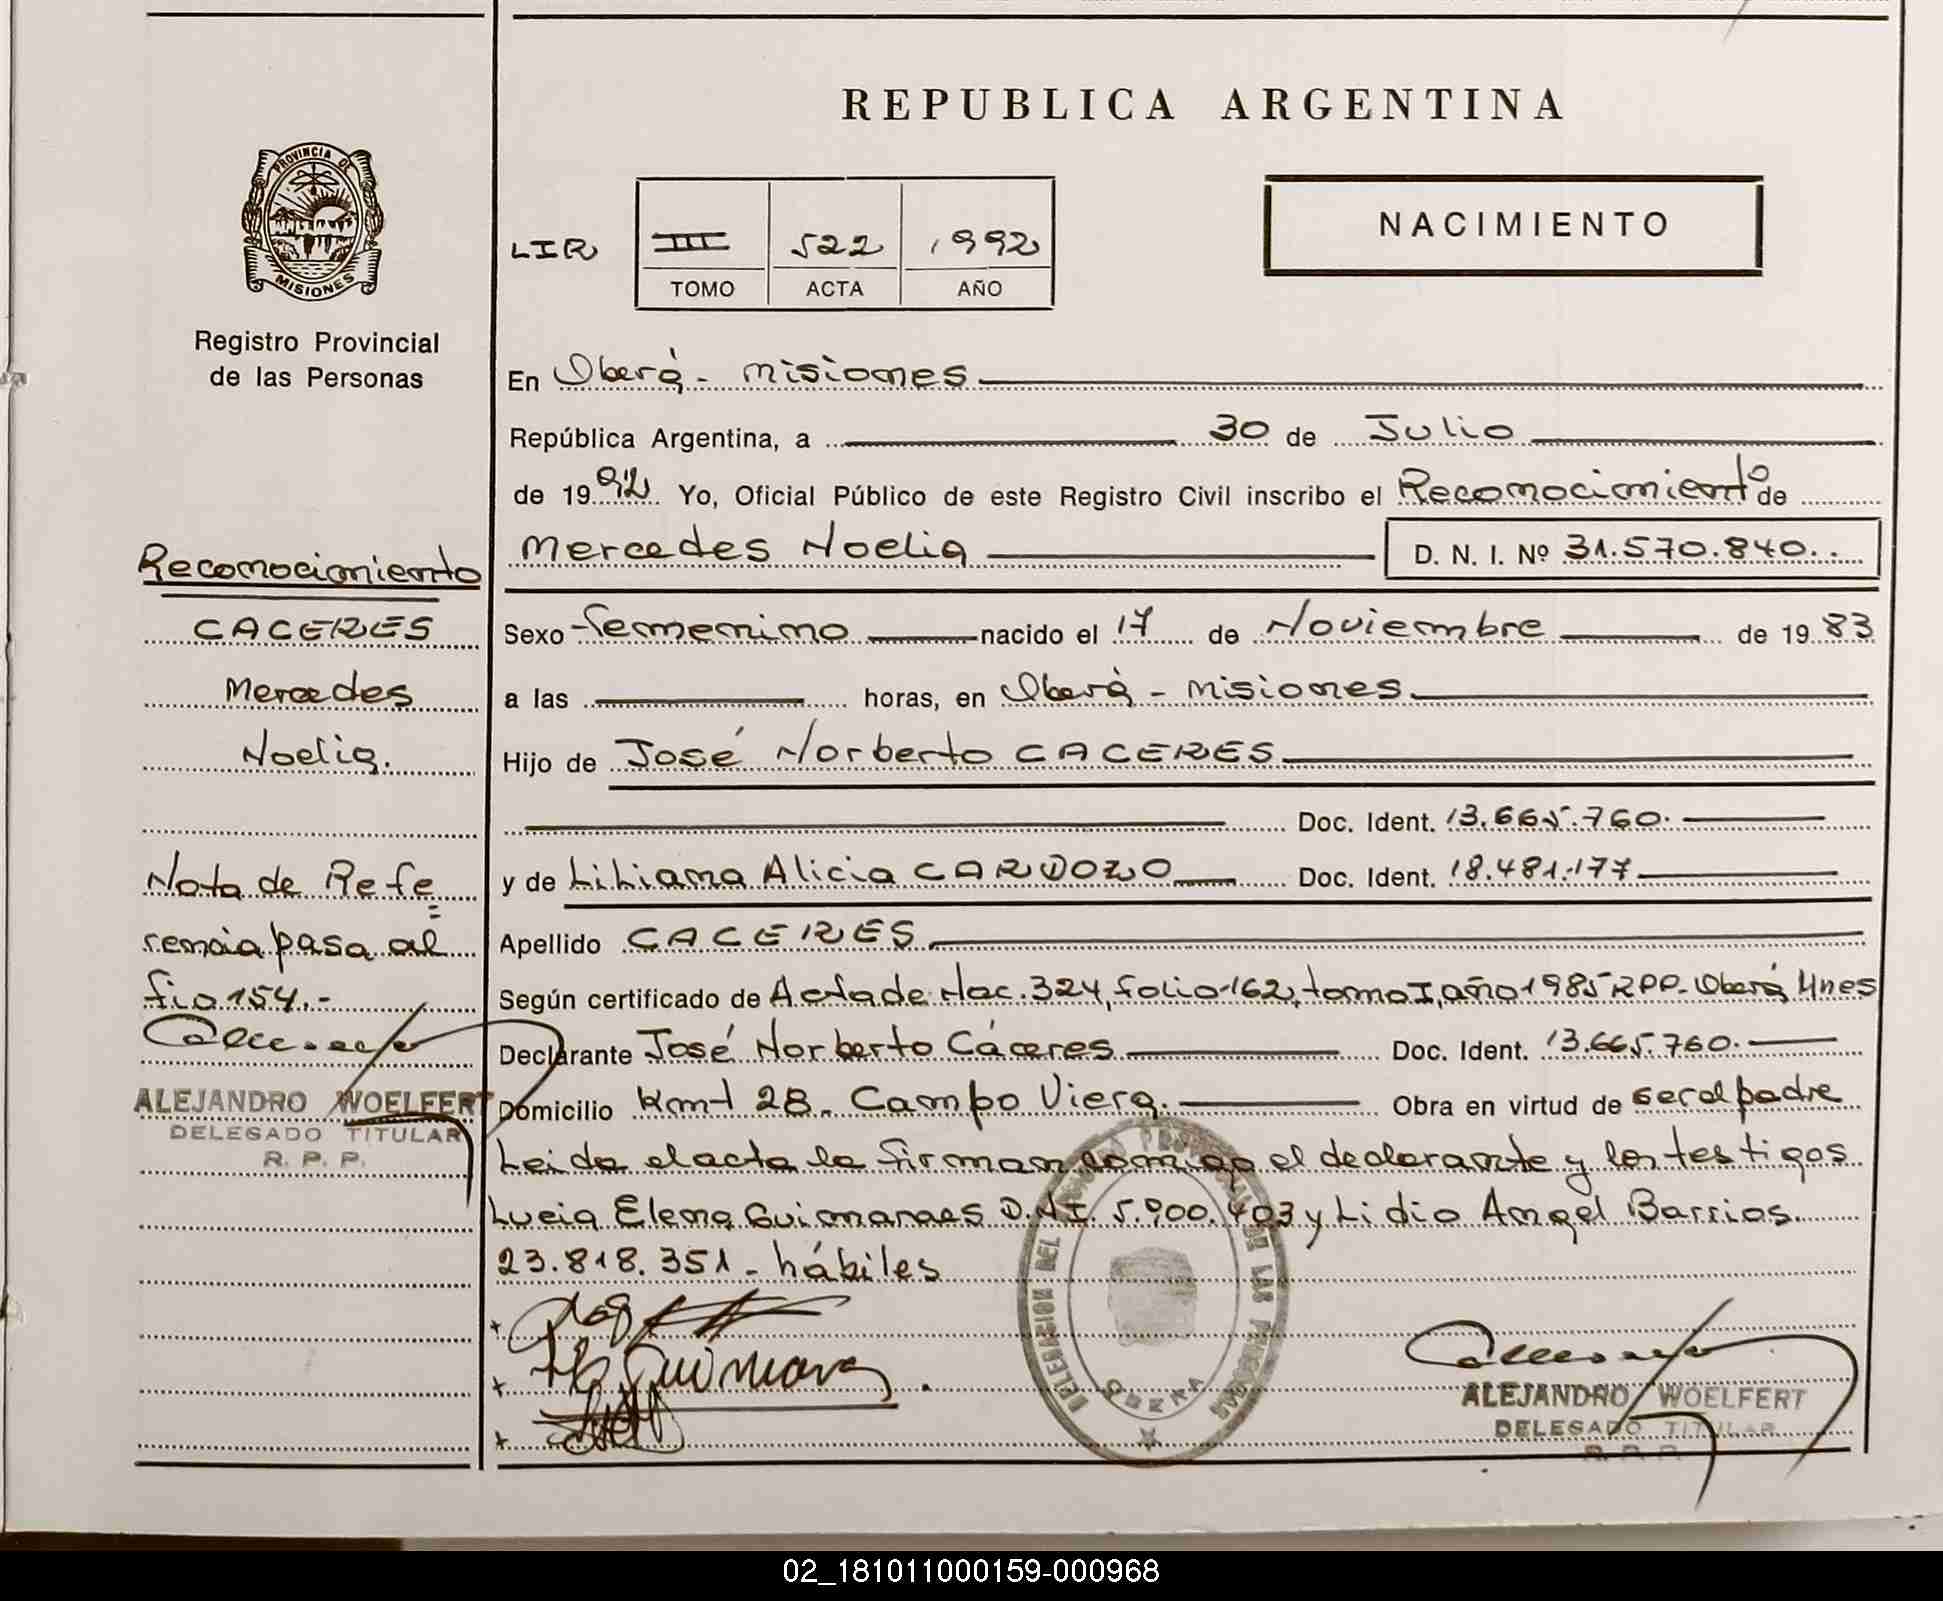 REPUBLICA ARGENTINA
PROVINCIA DE
MISIONES
Registro Provincial
de las Personas
LIR
III 522 1992
TOMO ACTA AÑO
NACIMIENTO
En Oberá - Misiones
República Argentina, a 30 de Julio
de 1992 Yo, Oficial Público de este Registro Civil inscribo el Reconocimiento de
Mercedes Noelia D. N. I. Nº 31.570.840..
Sexo femenino nacido el 17 de Noviembre de 1983
a las horas, en Oberá - Misiones
Hijo de José Norberto CACERES
Doc. Ident. 13.665.760.
y de Liliana Alicia CARDOZO Doc. Ident. 18.481.177
Apellido CACERES
Según certificado de Acta de Nac. 324, folio 162, tomo I, año 1985 RPP. Oberá Mnes
Declarante José Norberto Cáceres Doc. Ident. 13.665.760.
Domicilio Kmt 28. Campo Viera. Obra en virtud de ser el padre
Leida el acta la firman conmigo el declarante y los testigos
Lucia Elena Guimaraes D.N.I. 5.900.403 y Lidio Angel Barrios
23.818.351 - hábiles
Reconocimiento
CACERES
Mercedes
Noelia.
Nota de Refe=
rencia pasa al
fio 154.-
ALEJANDRO WOELFERT
DELEGADO TITULAR
R. P. P.
DELEGACION DEL REGISTRO PROVINCIAL DE LAS PERSONAS
OBERA
ALEJANDRO WOELFERT
DELEGADO TITULAR
R. P. P.
02_181011000159-000968